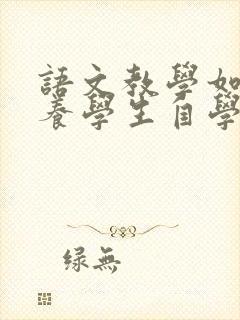 語文教學如
養學生自學
緣無